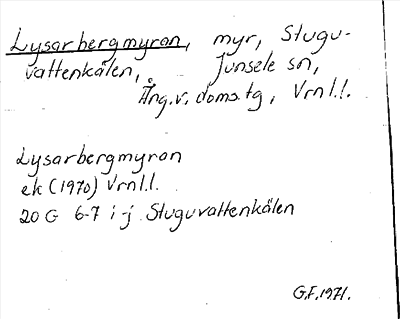 Lysarbergmyran, myr, Stugu-
vattenkälen, Junsele sn,
Ång.v. doms.tg, Vrnl.l.
Lysarbergmyran
ek (1970) Vrnl.l.
20 G 6-7 i-j Stuguvattenkälen
G.F. 1971.